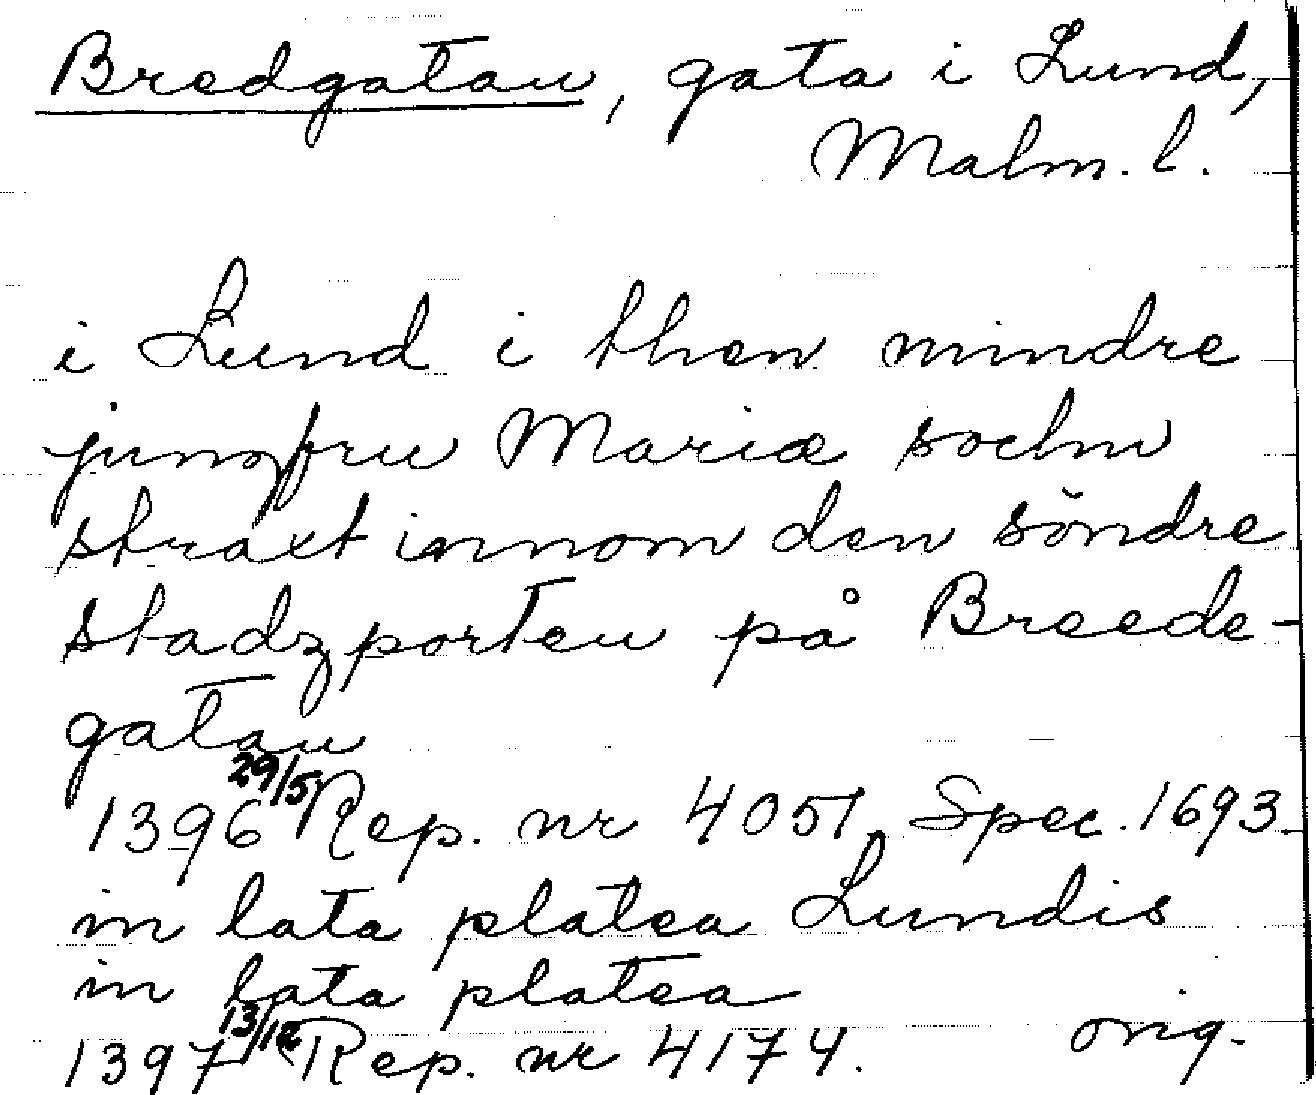 Bredgatan, gata i Lund,
Malm. l.
i Lund i then mindre
jungfru Mariæ sochn
straxt innom den söndre
stadzporten på Breede-
gatan
1396 29/5 Rep. nr 4051. Spec. 1693.
in lata platea Lundis
in lata platea
1397 13/12 Rep. nr 4174. orig.